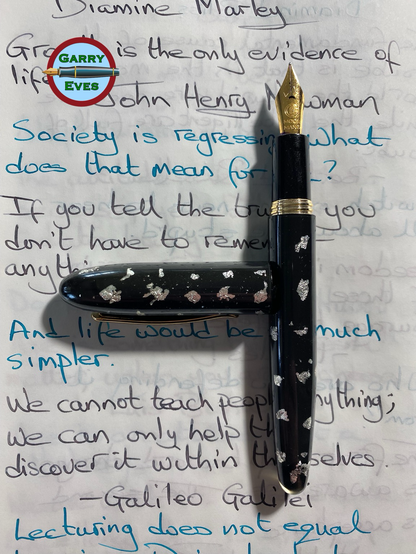 Diamine Marley
GARRY
EVES
is the only evidence of
life
John Henry Newman
Society is regressing What
does that mean for ?
If you tell the you
don't have to
And life would be much
simpler.
We cannot teach
we can only help
discover it within
—Galileo Galilei
Lecturing does not equal